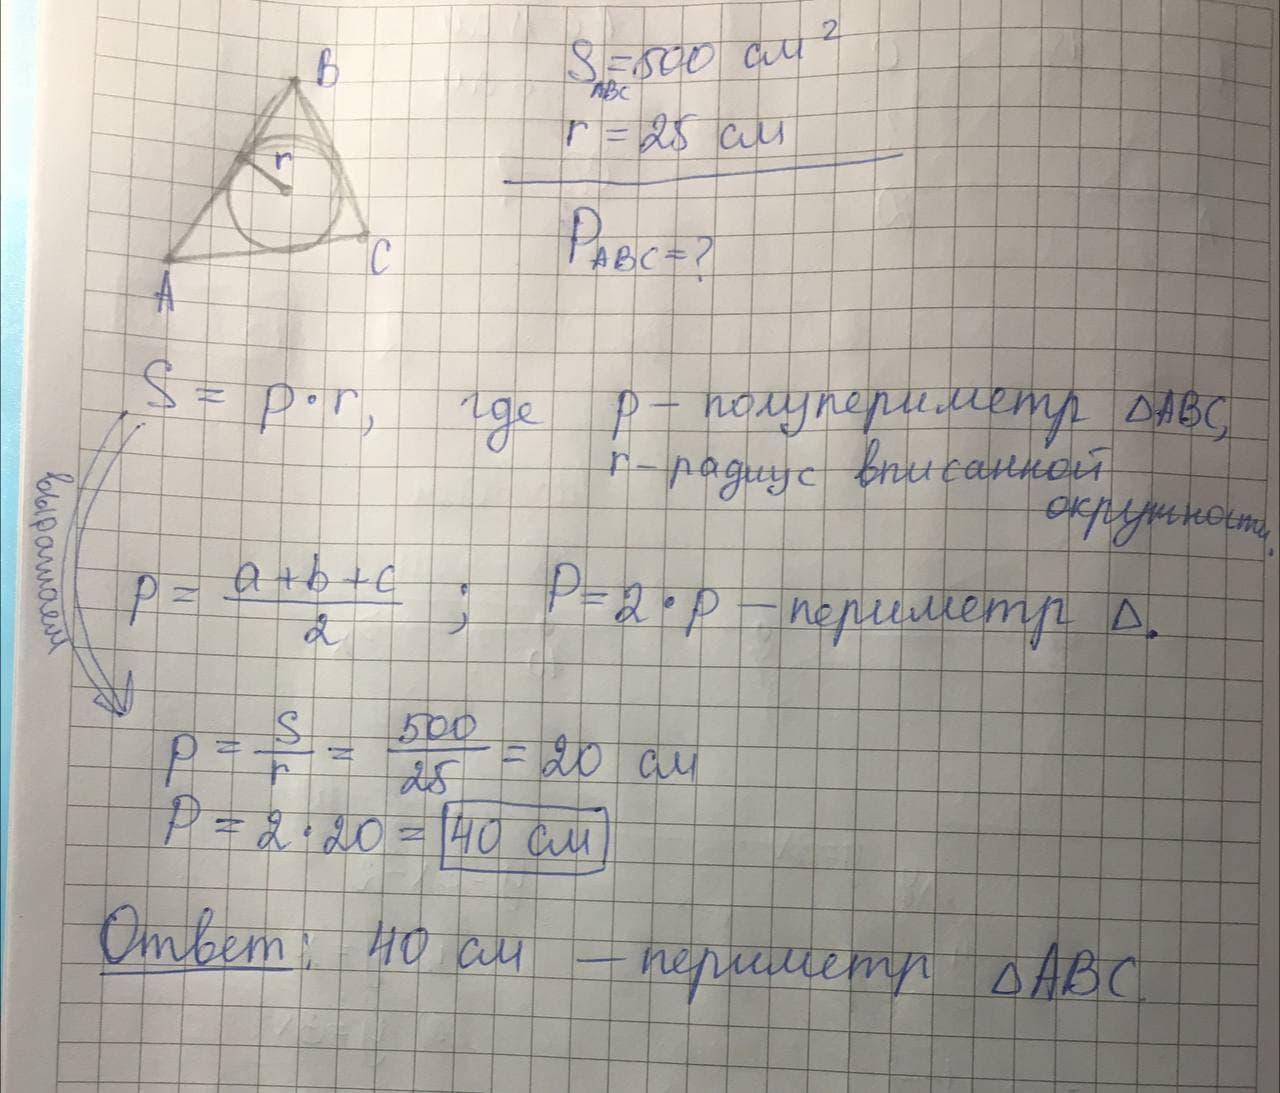 B
r
A
C
S_ABC = 500 см²
r = 25 см
P_ABC = ?
S = p · r, где p – полупериметр △ABC,
r – радиус вписанной
окружности.
выражаем
p = (a + b + c)/2 ; P = 2 · p – периметр △.
p = S/r = 500/25 = 20 см
P = 2 · 20 = 40 см
Ответ: 40 см – периметр △ABC.